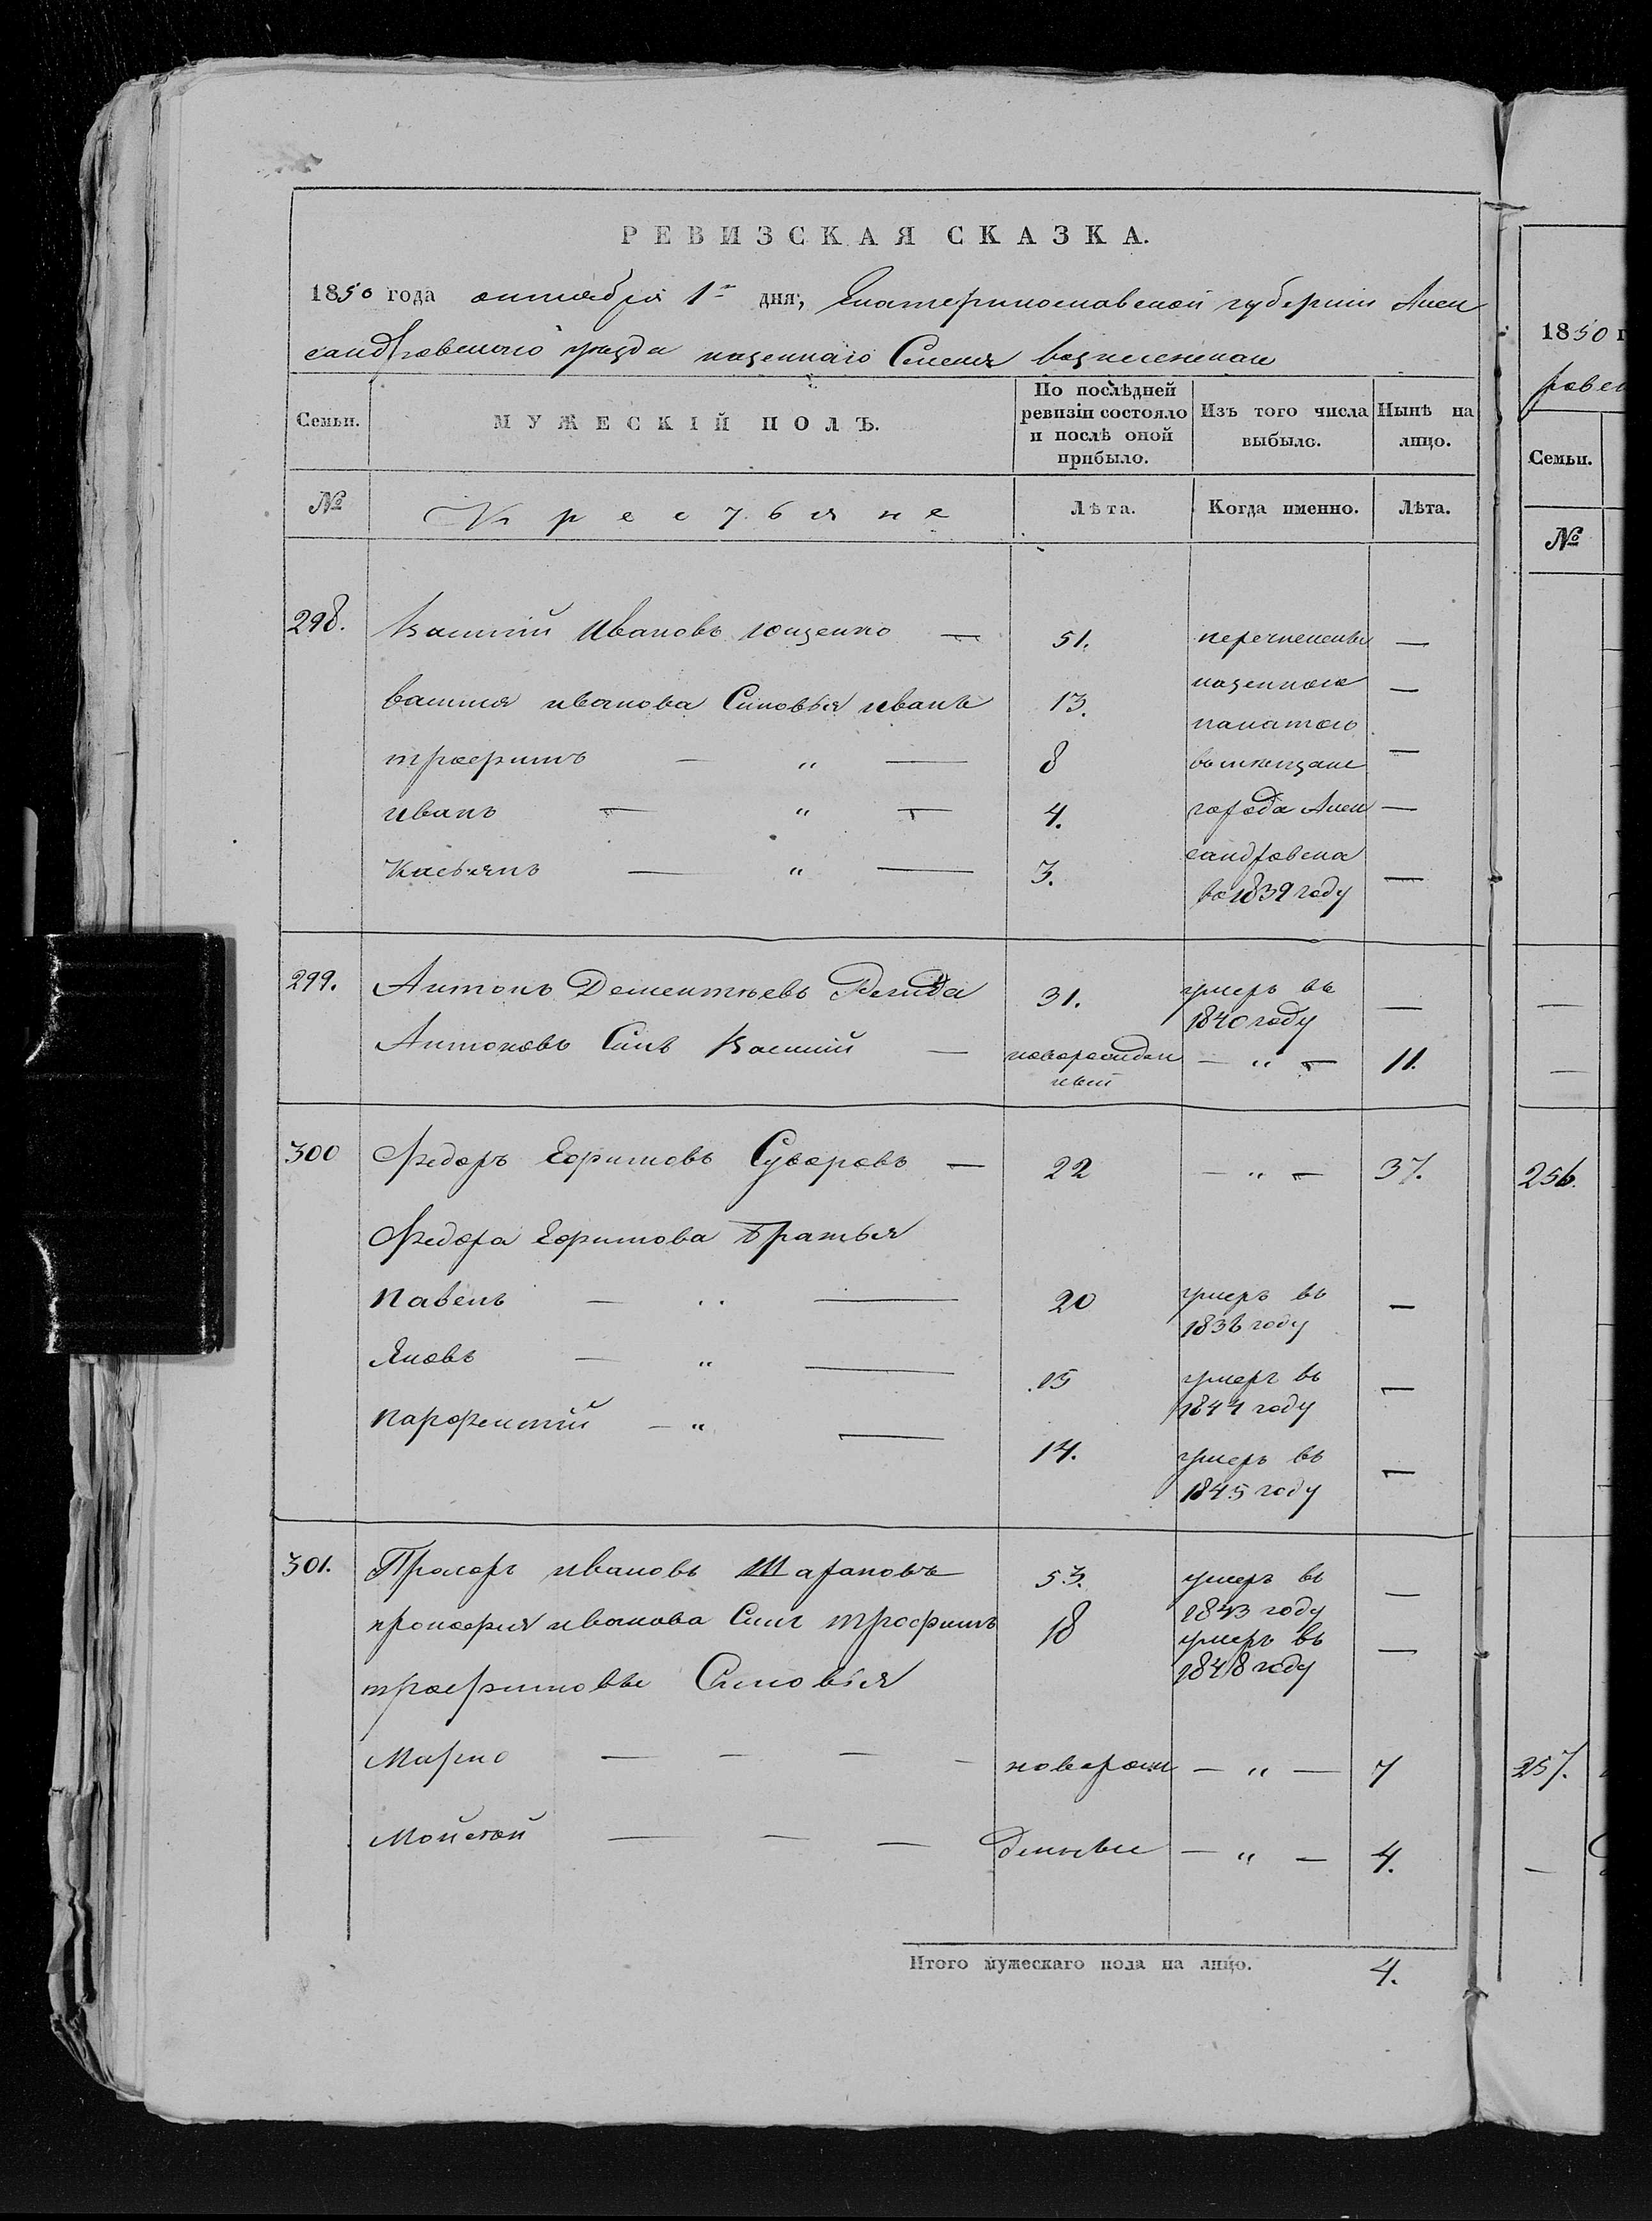 РЕВИЗСКАЯ СКАЗКА.
1850 года октября 1го дня, Екатеринославской губернии Алек
сандровскаго уезда казеннаго Селения вознесенское
Семьи. МУЖЕСКІЙ ПОЛЪ. По послѣдней ревизіи состояло и послѣ оной прибыло. Изъ того числа выбыло. Нынѣ на лицо.
№ Крестьяне Лѣта. Когда именно. Лѣта.
298. Василий Ивановъ Ющенко — 51. перечислены —
василия иванова Сыновья иванъ 13. казенною —
палатою
трофимъ — " — 8 вымещане —
иванъ — " — 4. города Алек —
сандровска
Касьянъ — " — 3. во 1839 году —
299. Антонъ Дементьевъ 31. умеръ въ 1840 году —
Антоновъ Сынъ Василий — новорожден ный — " — 11.
300 Федоръ Ефимовъ Суворовъ — 22 — " — 37.
Федора Ефимова Братья
Павелъ — " — 20 умеръ въ 1836 году —
Яковъ — " — 15 умеръ въ 1844 году —
Парфентий — " — 14. умеръ въ 1845 году —
301. Прокофъ ивановъ Шараповъ 53. умеръ въ 1843 году —
прокофия иванова Сынъ трофимъ 18 умеръ въ 1848 году —
трофимовы Сыновья
Марко — — — — новорож — " — 7
Мойсей — — — денные — " — 4.
Итого мужескаго пола на лицо. 4.
1850 г
ровск
Семьи.
№
256.
257.